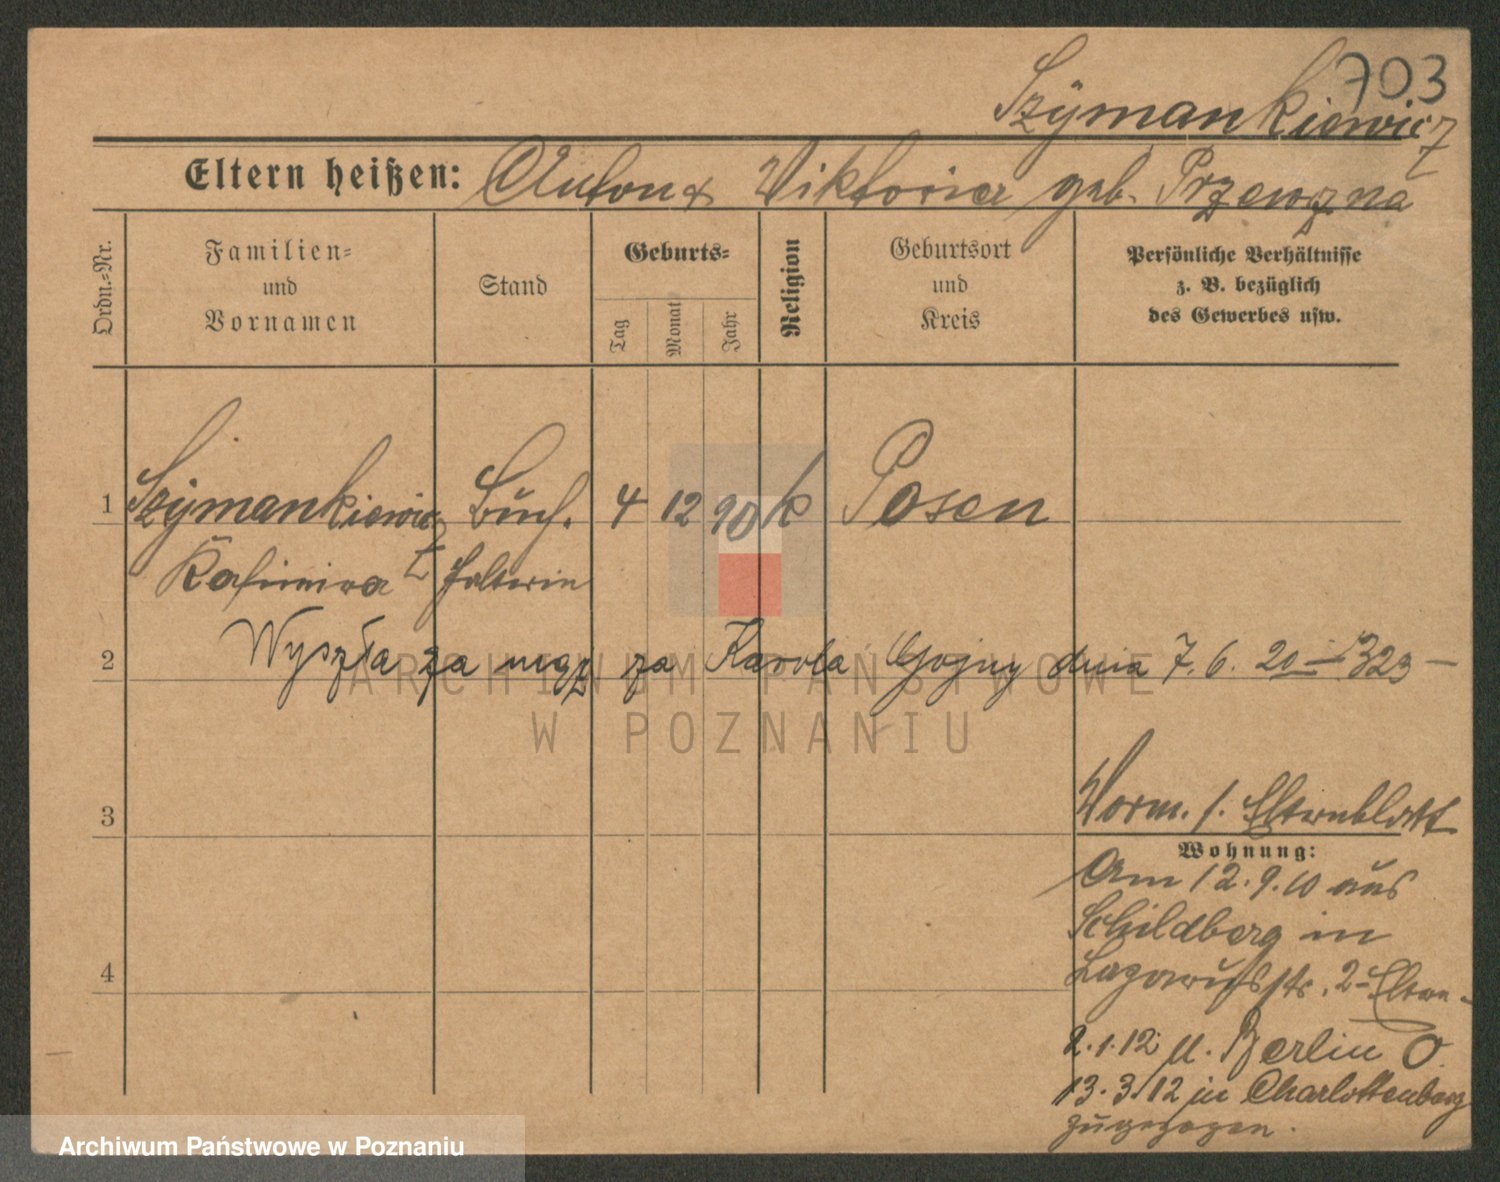 703
Szÿmankiewicz
Eltern heißen: Anton & Viktoria geb. Przewozna
Ordn.-Nr.
Familien-
und
Vornamen
Stand
Geburts-
Tag
Monat
Jahr
Religion
Geburtsort
und
Kreis
Persönliche Verhältnisse
z. B. bezüglich
des Gewerbes usw.
1 Szÿmankiewicz Buch. 4 12 90 k Posen
Kasimira halterin
2 Wyszła za mąż za Karola Gojny dnia 7. 6. 20 – 323 –
3
Vorm. s. Elternblatt
Wohnung:
Am 12.9.10 aus
Schildberg in
str. 2 – Eltern –
4
2.1.12 n. Berlin O
13.3.12 in Charlottenburg
zugezogen.
ARCHIWUM PAŃSTWOWE
W POZNANIU
Archiwum Państwowe w Poznaniu